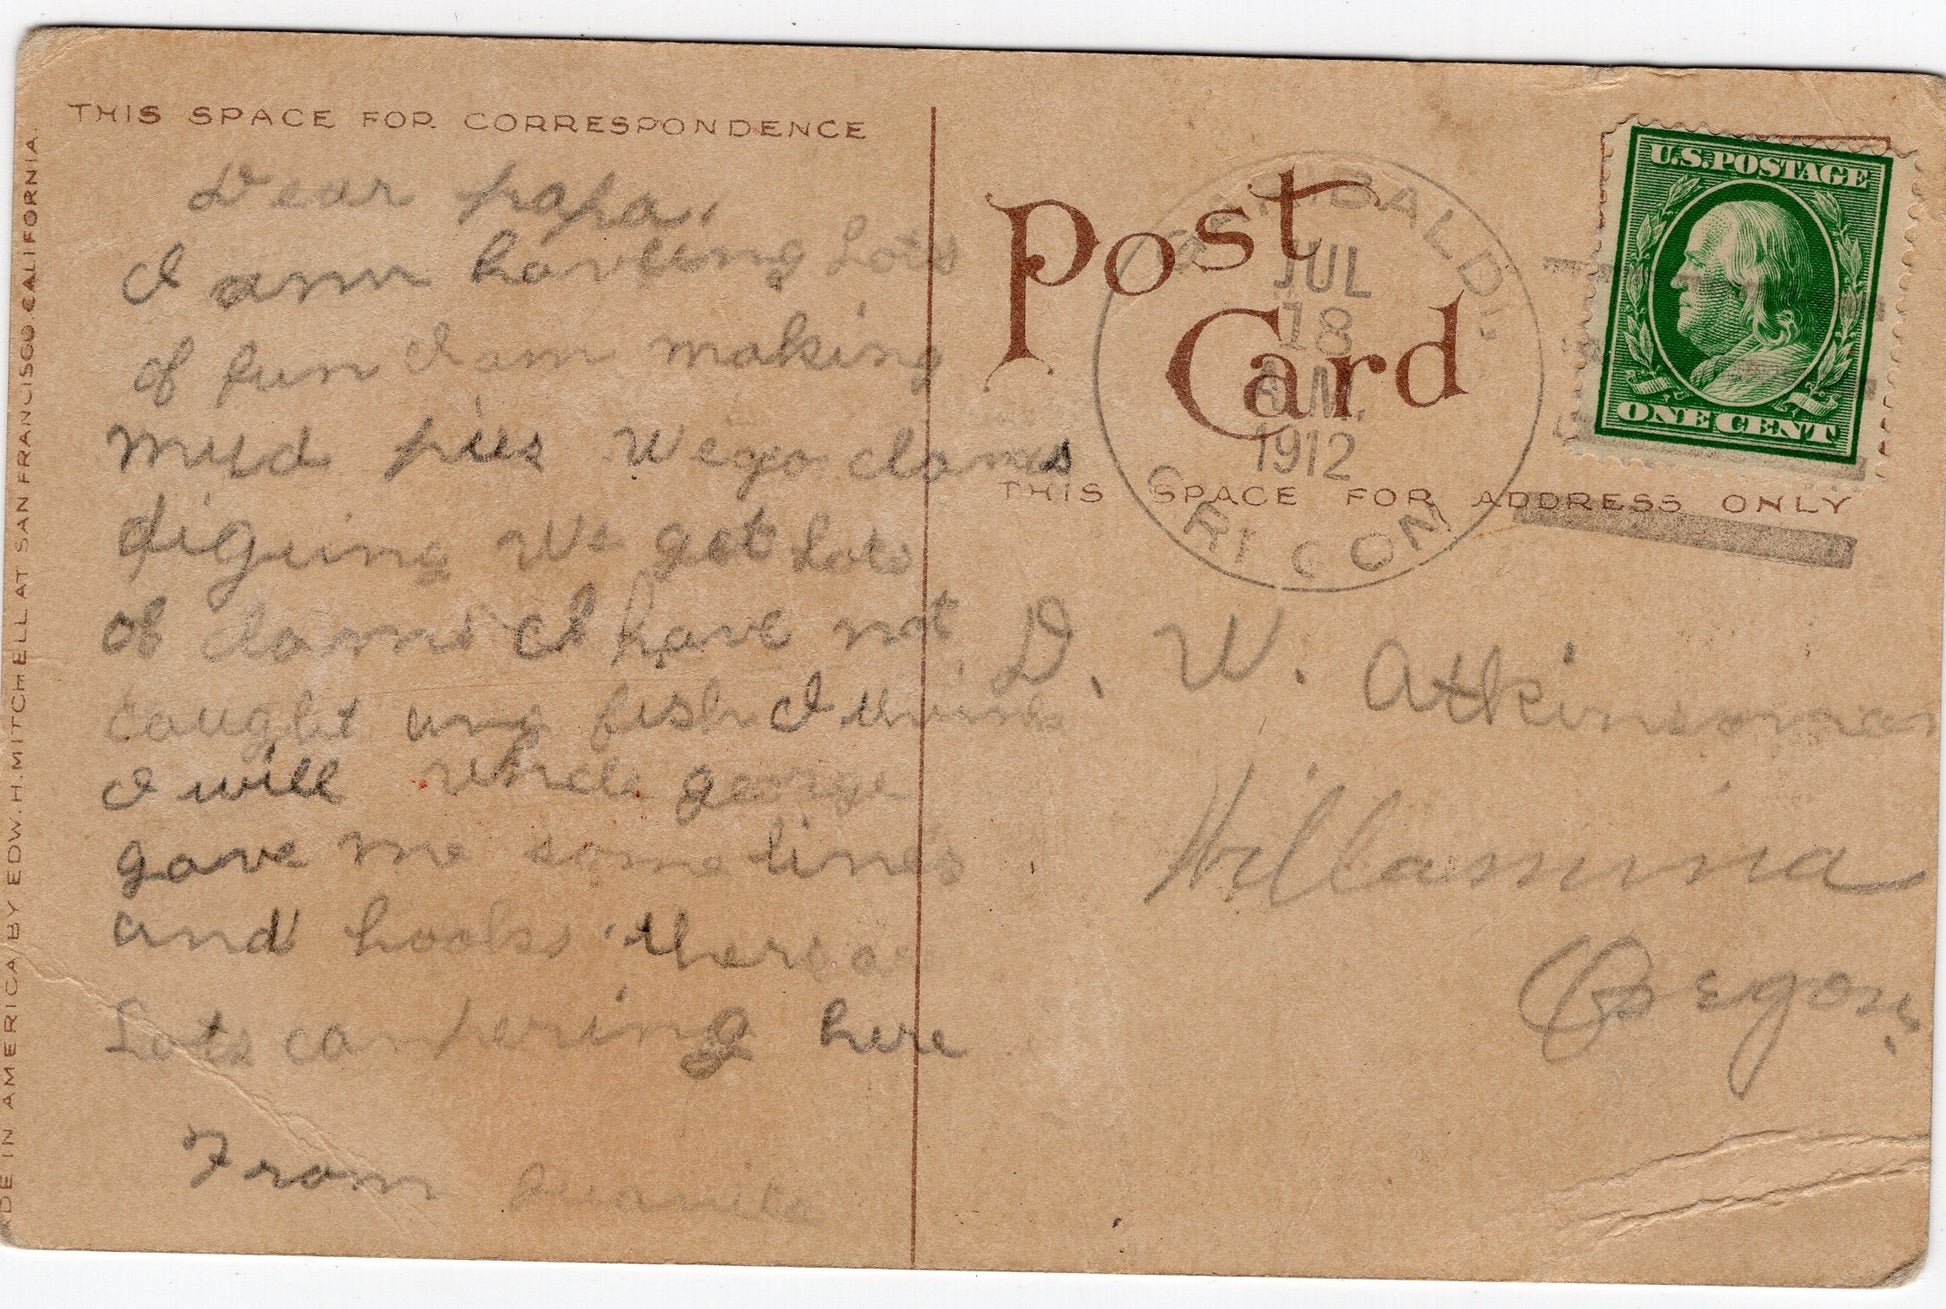 THIS SPACE FOR CORRESPONDENCE
Dear papa,
I am haveing Lots
of fun I am making
mud pies We go clams
diging We got Lots
of clams I have not
caught any fish I think
I will Uncle george
gave me some lines
and hooks there a
Lots campering here
From Juanita
DE IN AMERICA BY EDW. H. MITCHELL AT SAN FRANCISCO CALIFORNIA.
Post
Card
GARIBALDI
JUL
18
A.M.
1912
OREGON
U.S. POSTAGE
ONE CENT
THIS SPACE FOR ADDRESS ONLY
D. W. Atkinson
Willamina
Oregon.